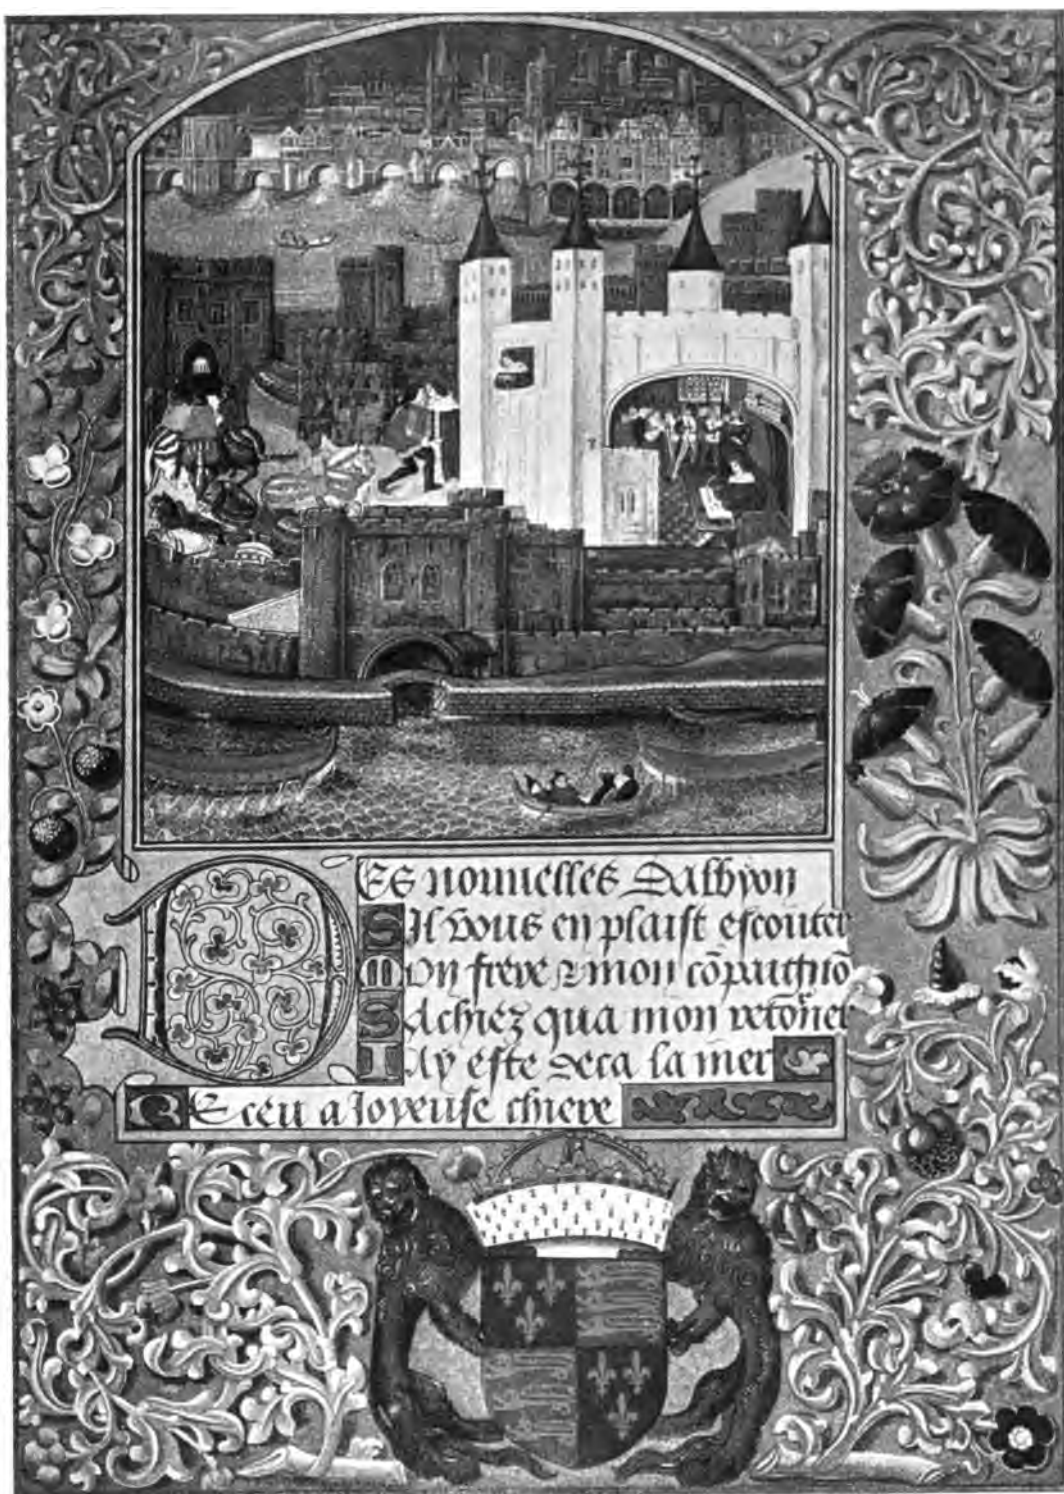 DES nouuelles Dalbyon
Sil vous en plaist escouter
Mon frere & mon cōpaignō
Sachiez qua mon retōner
Iay este deca la mer
Receu a Ioyeuse chiere